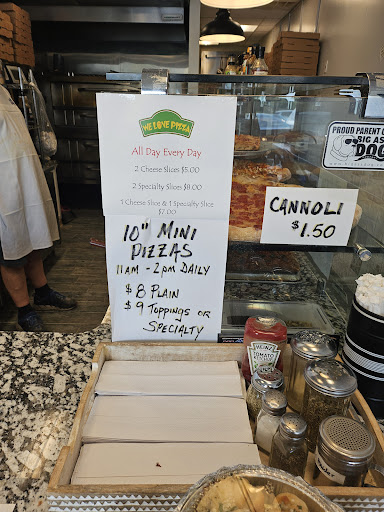 WE LOVE PIZZA!
All Day Every Day
2 Cheese Slices $5.00
2 Specialty Slices $8.00
1 Cheese Slice & 1 Specialty Slice
$7.00
10" MINI
PIZZAS
11AM - 2PM DAILY
$8 PLAIN
$9 TOPPINGS OR
SPECIALTY
CANNOLI
$1.50
PROUD PARENT O
BIG AS
DOG
HEINZ
TOMATO